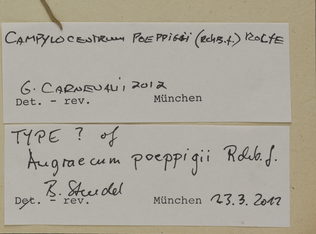 CAMPYLOCENTRUM POEPPIGII (RCHB.f.) ROLFE
G. CARNEVALI 2012
Det. - rev. München
TYPE ? of
Angraecum poeppigii Rchb.f.
B.
Det. - rev. München 23.3.2012